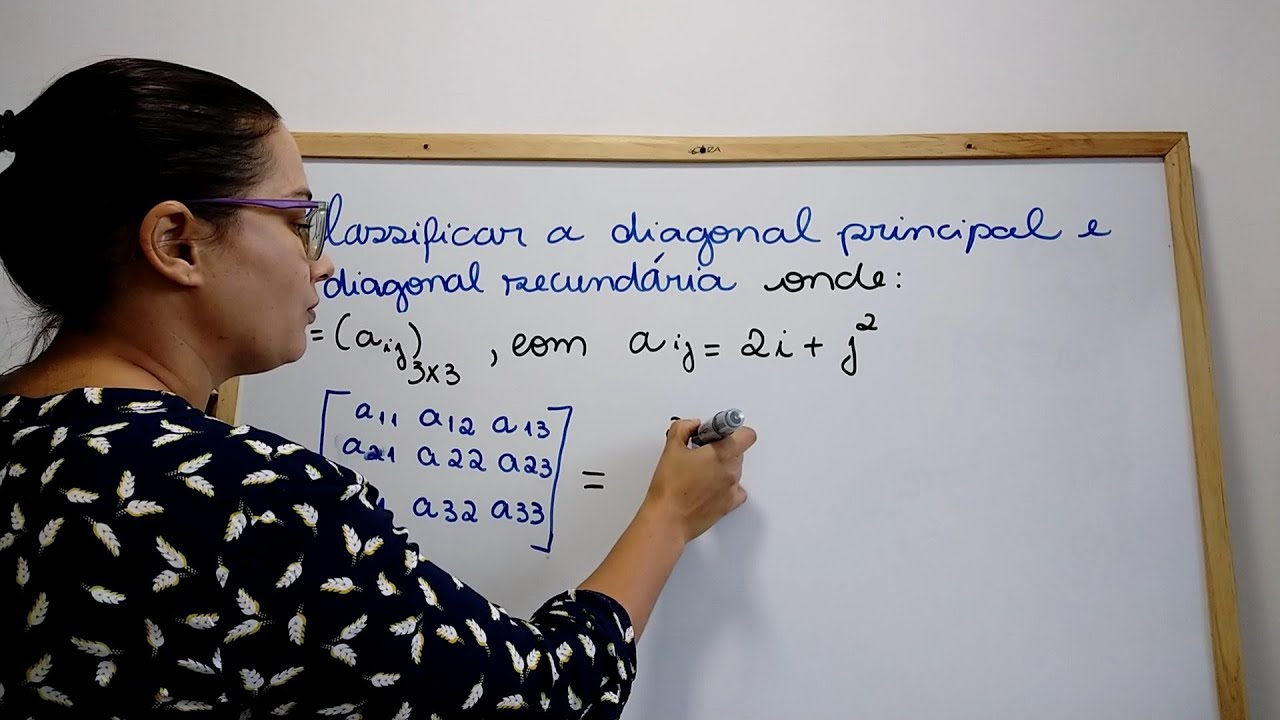 lassificar a diagonal principal e
diagonal secundária onde:
= (aij)3x3 , com aij = 2i + j²
a11 a12 a13
a21 a22 a23 =
a32 a33